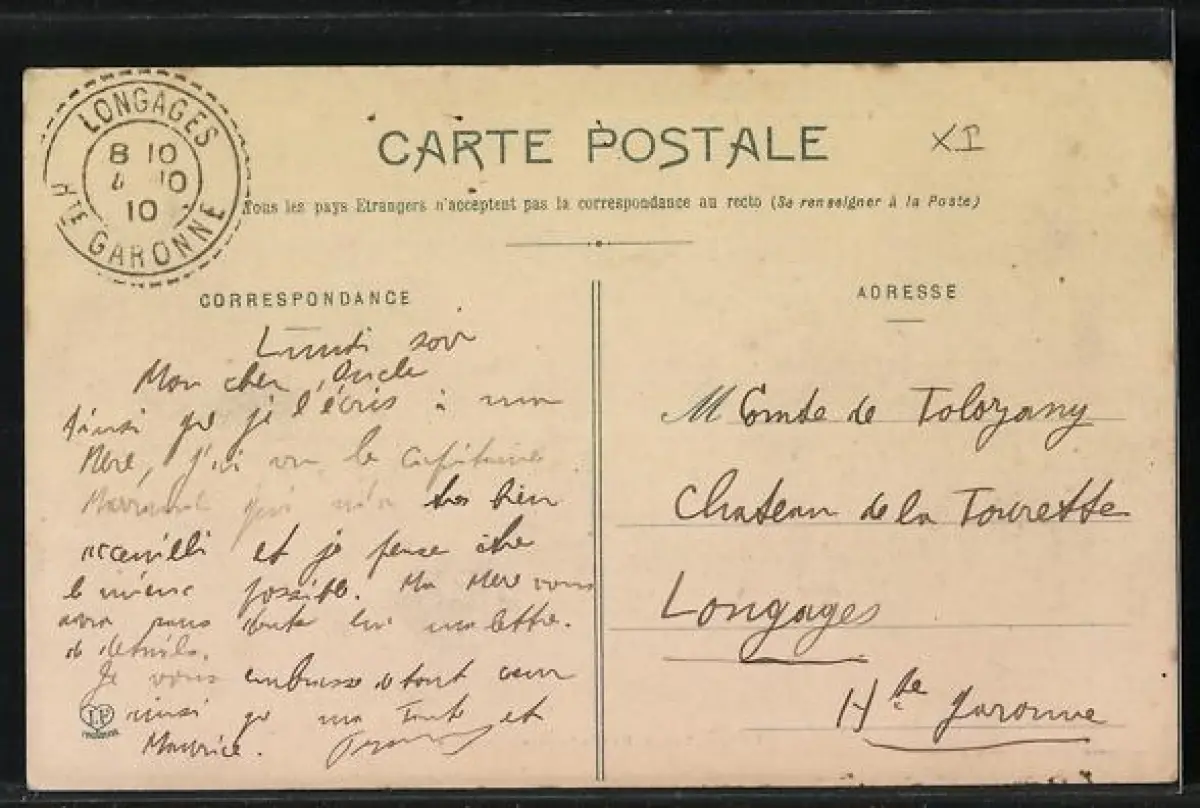 LONGAGES
8 10
4 10
10
HTE GARONNE
CARTE POSTALE
XI
Tous les pays Etrangers n'acceptent pas la correspondance au recto (Se renseigner à la Poste)
CORRESPONDANCE
Lundi soir
Mon cher Oncle
Ainsi que je l'écris à ma
Mère, j'ai vu le Capitaine
qui m'a très bien
accueilli et je pense être
le mieux possible. Ma Mère vous
aura sans doute lu ma lettre
de détails.
Je vous embrasse de tout cœur
ainsi que ma Tante et
Maurice.
ADRESSE
M Comte de Tolozany
Chateau de la Tourette
Longages
Hte Garonne